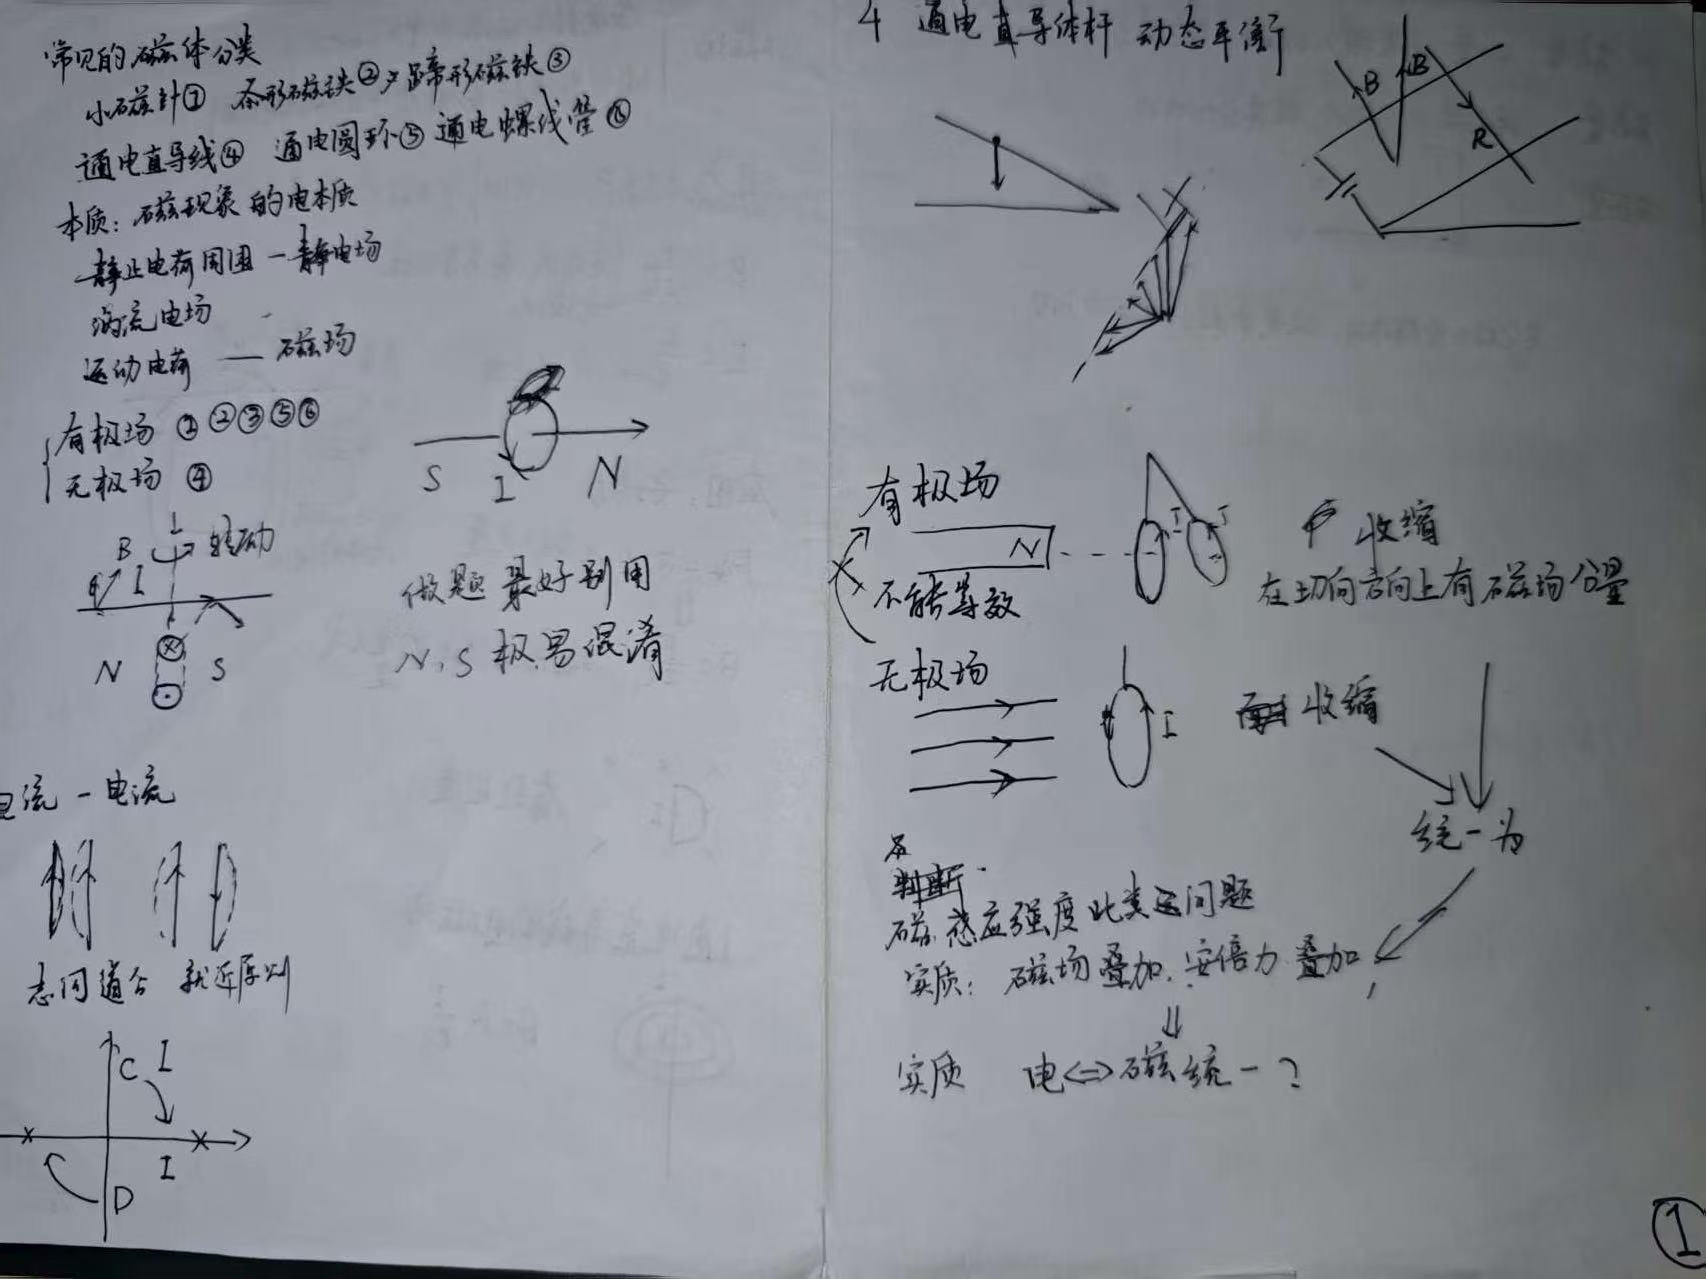 常见的磁体分类
小磁针① 条形磁铁② 蹄形磁铁③
通电直导线④ 通电圆环⑤ 通电螺线管⑥
本质：磁现象的电本质
静止电荷周围一静电场
涡流电场
运动电荷 — 磁场
有极场 ①②③⑤⑥
无极场 ④
S I N
B I 转动
N S
做题最好别用
N、S极易混淆
电流-电流
志同道合 就近原则
C I
I
D
4 通电直导体杆 动态平衡
B B
R
有极场
N I I
收缩
在切向方向上有磁场分量
不能等效
无极场
I
收缩
统一为
磁感应强度此类问题
实质：磁场叠加、安倍力叠加
实质 电⇔磁统一？
①